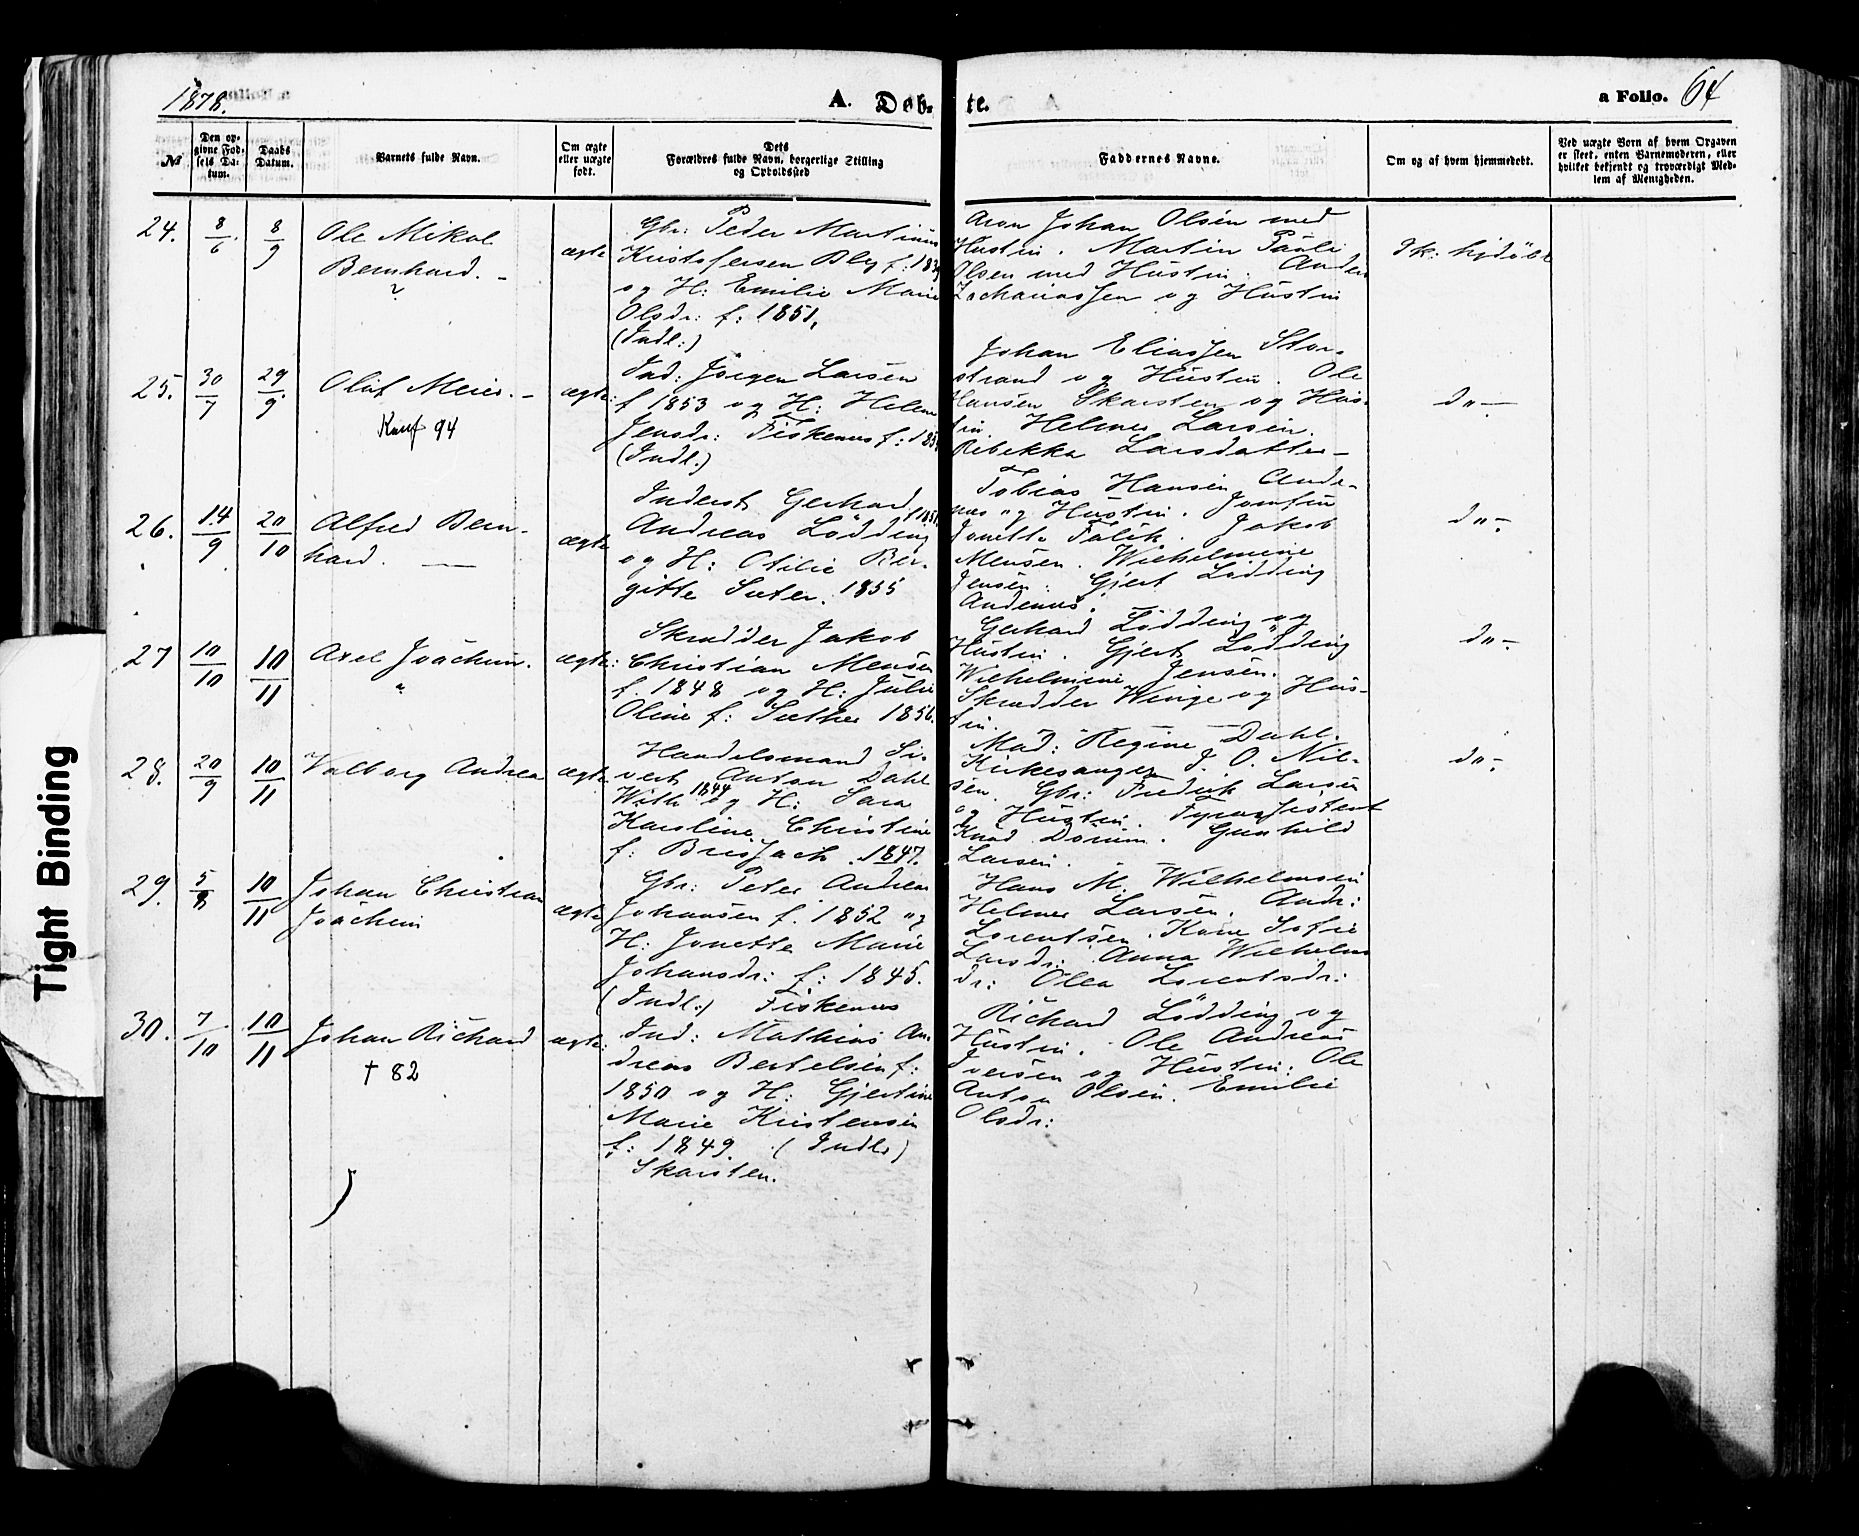 1878.
A. Døb-
te.
a Folio. 64
№
Den op-
givne Fød-
sels Da-
tum.
Daabs
Datum.
Barnets fulde Navn.
Om ægte
eller uægte
født.
Dets
Forældres fulde Navn, borgerlige Stilling
og Opholdssted
Faddernes Navne.
Om og af hvem hjemmedøbt.
Ved uægte Børn af hvem Opgaven
er skeet, enten Barnemoderen, eller
hvilket bekjendt og troværdigt Med-
lem af Menigheden.
24.
8/6
8/9
Ole Mikal
Bernhard. -
ægte
Gbr: Peder Martinus
Kristofersen Bley f: 1839
og H: Emilie Marie
Olsdr: f: 1851.
(Indl:)
Aron Johan Olsen med
Hustru. Martin Pauli
Olsen med Hustru.
Zachariassen og Hustru
Ik. hjdøbt
25.
30/7
29/9
Oluf Meier. -
Konf 94
ægte:
Ind: Jørgen Larsen
f 1853 og H: Helene
Jensdr: Fiskenes f:
(Indl.)
Johan Eliassen Stor-
strand og Hustru. Ole
Hansen Skarsten og Hus-
tru. Helmer Larsen.
Rebekka Larsdatter -
do -
26.
14/9
20/10
Alfred Bern-
hard.
ægte
Inderst Gerhard
Andreas Lödding
og H: Otilie Ber-
gitte Sæter. 1855
Tobias Hansen Ande-
næs og Hustru. Jomfru
Jonette Falck. Jakob
Mensen. Wilhelmine
Jensen. Gjert Lödding
Andenæs.
do -
27
10/10
10/11
Axel Joachim.
"
ægte:
Skrædder Jakob
Christian Mensen
f. 1848 og H: Julie
Oline f: Sæther 1856.
Gerhard Lödding og
Hustru. Gjert Lödding
Wilhelmine Jensen.
Skrædder Winge og Hus-
tru.
do -
28.
20/9
10/11
Valborg Andrea
ægte
Handelsmand Si-
vert Anton Dahl
With 1844 og H: Sara
Karoline Christine
f: Brisach. 1847.
Mad: Regine Dahl.
Kirkesanger J. O. Nil-
sen. Gbr: Fredrik Larsen
og Hustru. Fyrassistent
Knud Dørum. Gunhild
Larsen.
do -
29.
5/8
10/11
Johan Christian
Joachim
ægte
Gbr: Peter Andreas
Johansen f. 1852 og
H: Jonette Marie
Johansdr: f: 1845.
(Indl:) Fiskenes
Hans M. Wilhelmsen
Helmer Larsen. Andr:
Lorentsen. Kane Sofie
Larsdr: Anna Wilhelms
dr: Olea Lorentsdr:
30.
7/10
10/11
Johan Richard
† 82
ægte:
Ind: Mathias An-
dreas Bertelsen f:
1850 og H: Gjertine
Marie Kristensen
f: 1849. (Indl:)
Skarsten.
Richard Lödding og
Hustru. Ole Andreas
Iversen og Hustru: Ole
Anton Olsen. Emilie
Olsdr:
Tight Binding